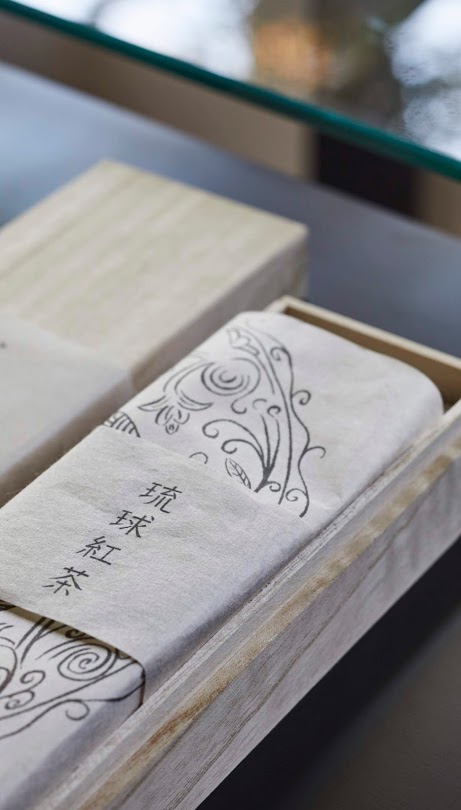 琉球紅茶